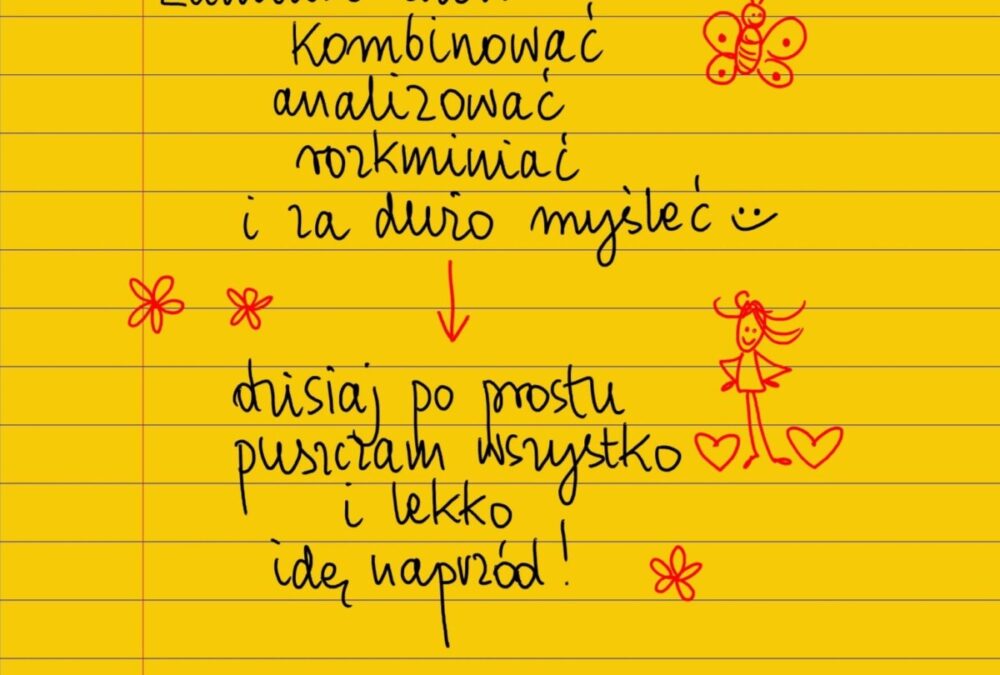 kombinować
analizować
rozkminiać
i za dużo myśleć
dzisiaj po prostu
puszczam wszystko
i lekko
idę naprzód!